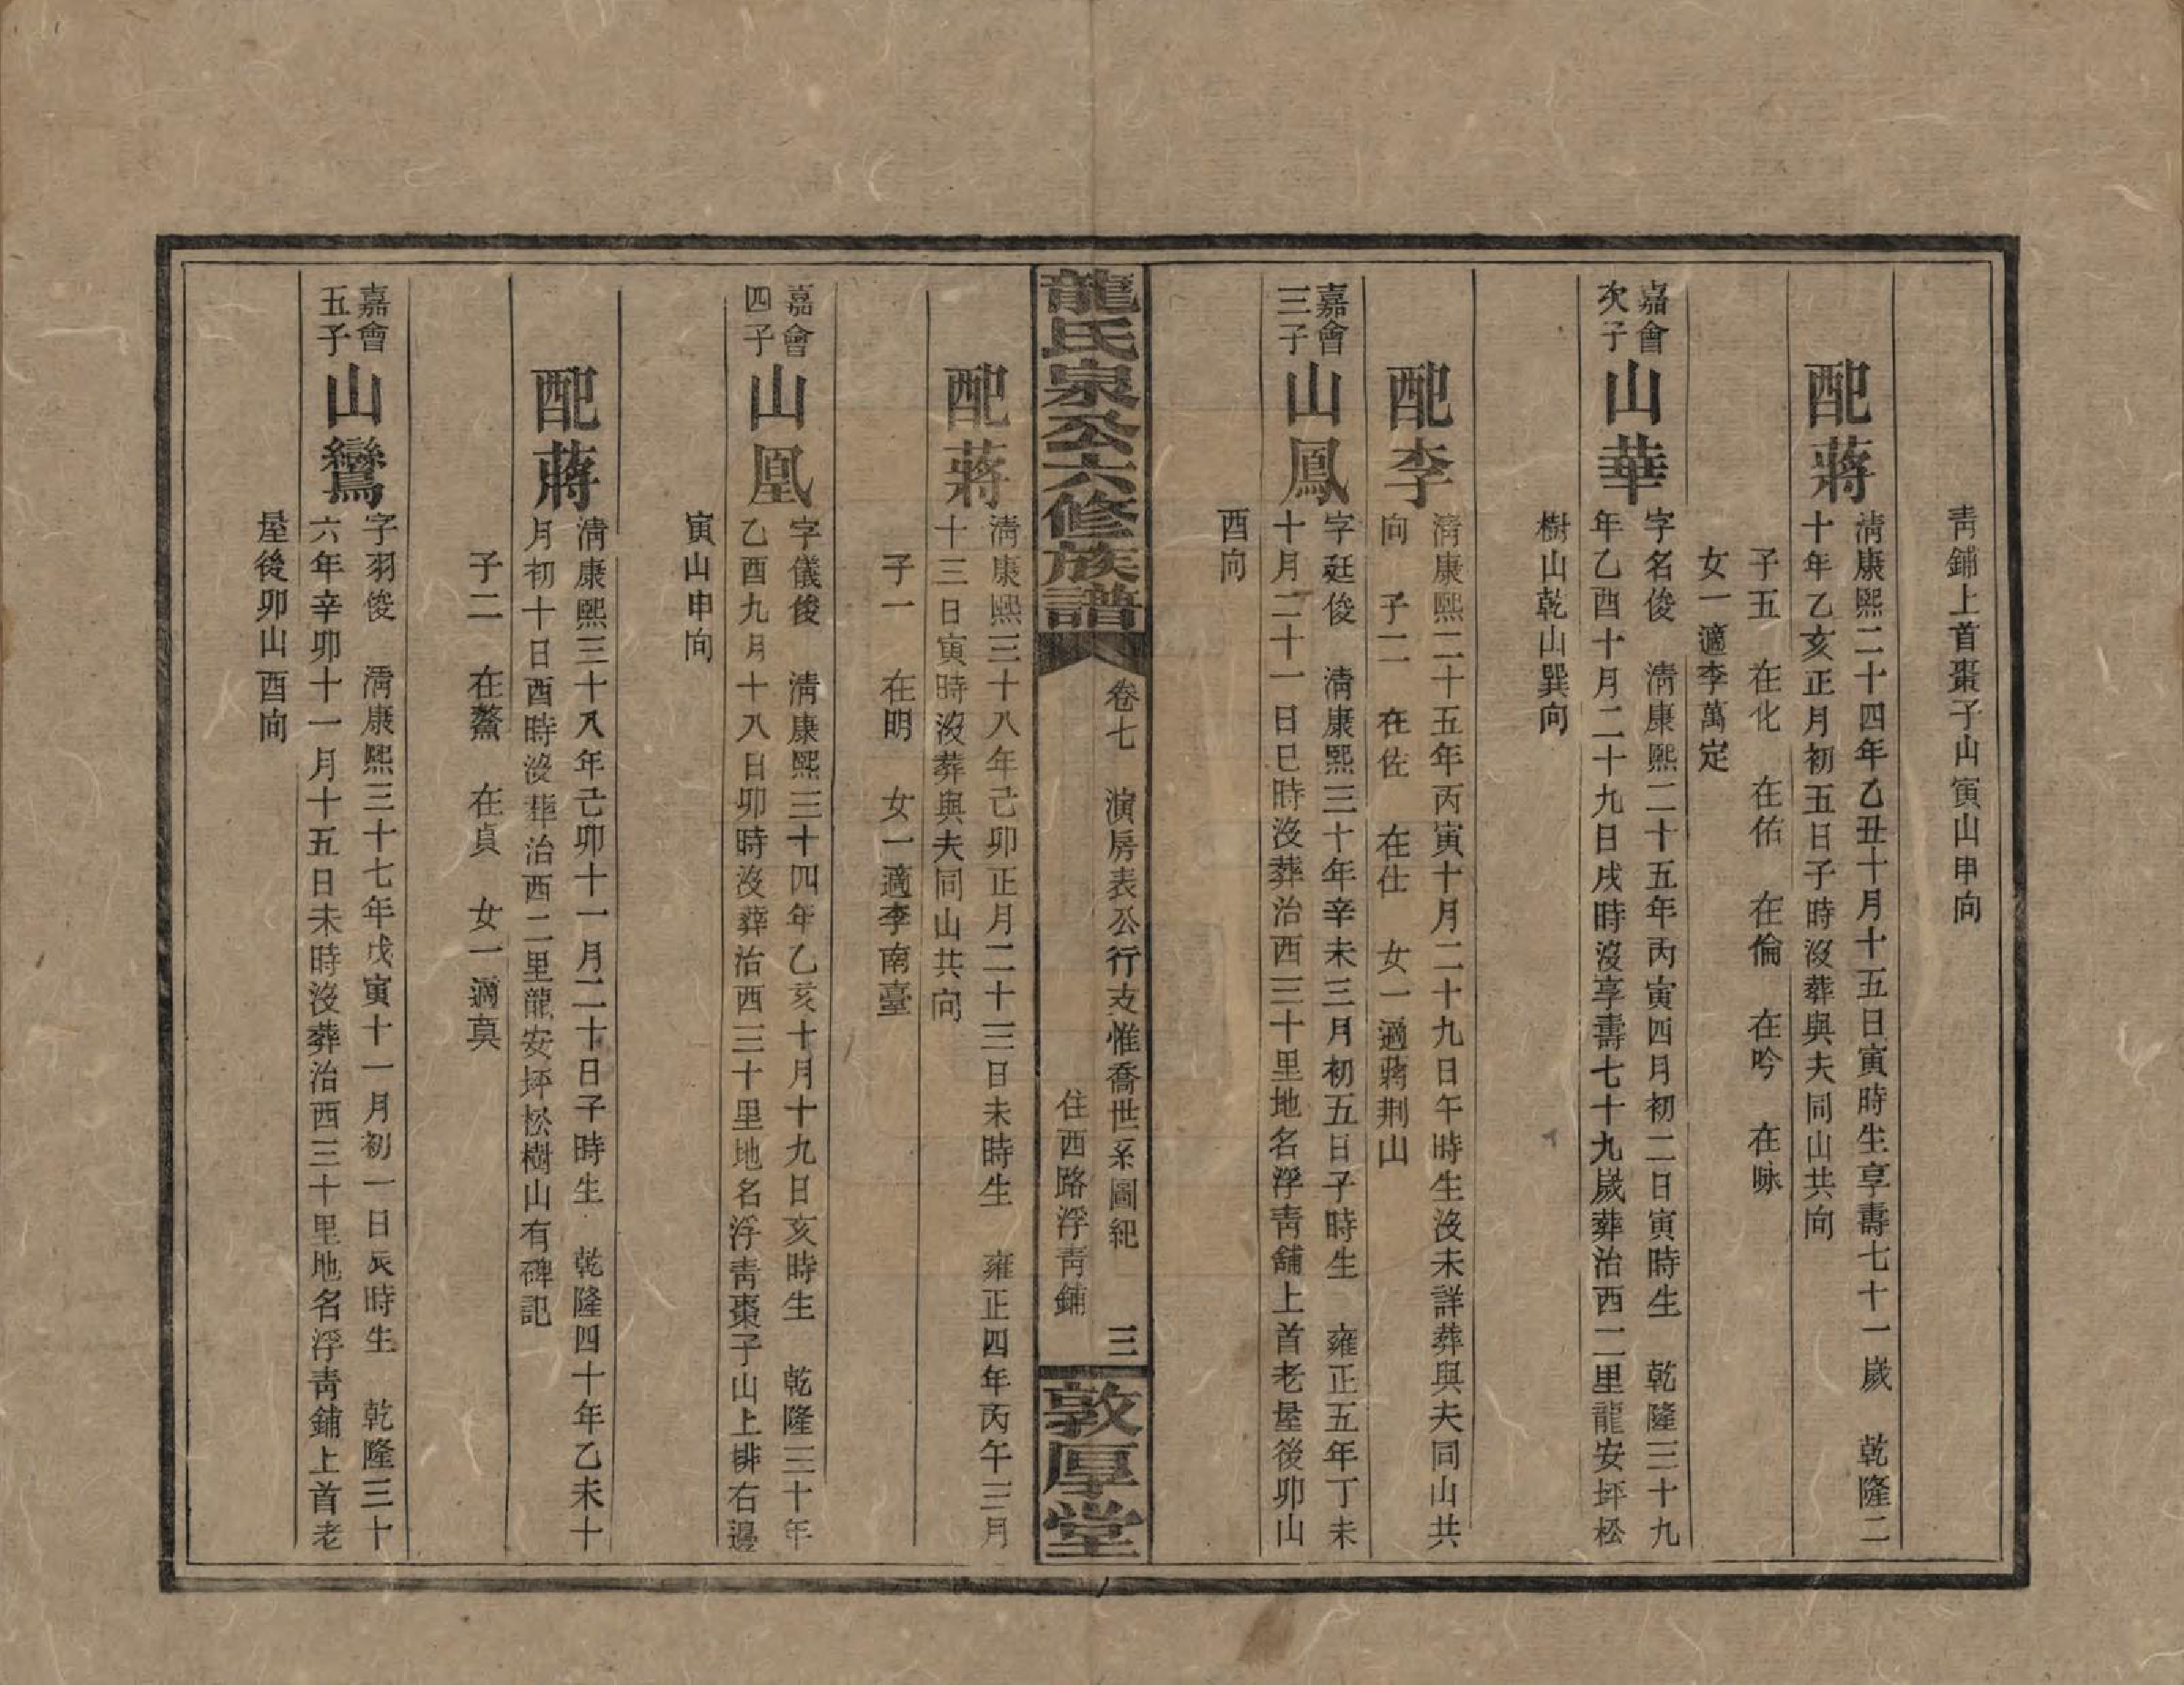 青鋪上首棗子山寅山申向
配蔣
清康熙二十四年乙丑十月十五日寅時生享壽七十一歲　乾隆二
十年乙亥正月初五日子時沒葬與夫同山共向
子五　在化　在佑　在倫　在吟　在咏
女一適李萬定
嘉會
次子
山華
字名俊　清康熙二十五年丙寅四月初二日寅時生　乾隆三十九
年乙酉十月二十九日戌時沒享壽七十九歲葬治西二里龍安坪松
樹山乾山巽向
配李
清康熙二十五年丙寅十月二十九日午時生沒未詳葬與夫同山共
向　子二　在佐　在仕　女一適蔣荆山
嘉會
三子
山鳳
字廷俊　清康熙三十年辛未三月初五日子時生　雍正五年丁未
十月二十一日巳時沒葬治西三十里地名浮青舖上首老屋後卯山
酉向
龍氏泉公六修族譜
卷七　演房表公行支惟喬世系圖紀　三
住西路浮青鋪
敦厚堂
配蔣
清康熙三十八年己卯正月二十三日未時生　雍正四年丙午三月
十三日寅時沒葬與夫同山共向
子一　在明　女一適李南臺
嘉會
四子
山凰
字儀俊　清康熙三十四年乙亥十月十九日亥時生　乾隆三十年
乙酉九月十八日卯時沒葬治西三十里地名浮青棗子山上排右邊
寅山申向
配蔣
清康熙三十八年己卯十一月二十日子時生　乾隆四十年乙未十
月初十日酉時沒葬治西二里龍安坪松樹山有碑記
子二　在鰲　在貞　女一適莫
嘉會
五子
山鸞
字羽俊　清康熙三十七年戊寅十一月初一日辰時生　乾隆三十
六年辛卯十一月十五日未時沒葬治西三十里地名浮青鋪上首老
屋後卯山酉向